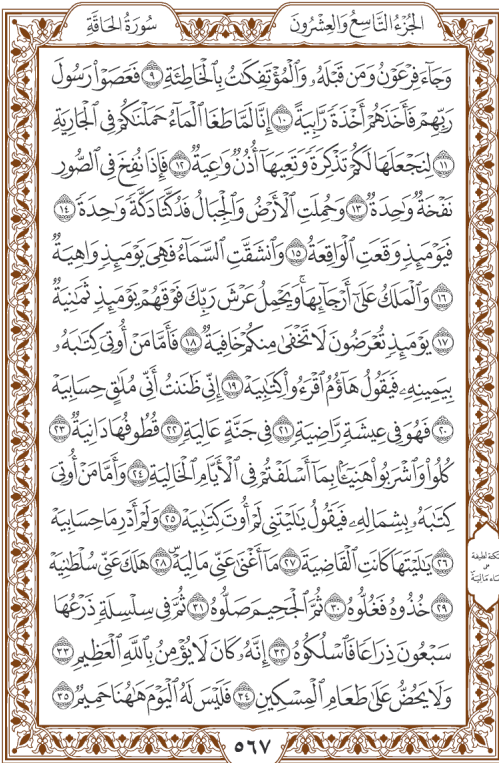 الجُزْءُ التَّاسِعُ وَالعِشْرُونَ سُورَةُ الحَاقَّةِ
وَجَآءَ فِرْعَوْنُ وَمَن قَبْلَهُۥ وَٱلْمُؤْتَفِكَٰتُ بِٱلْخَاطِئَةِ ٩ فَعَصَوْا۟ رَسُولَ
رَبِّهِمْ فَأَخَذَهُمْ أَخْذَةً رَّابِيَةً ١٠ إِنَّا لَمَّا طَغَا ٱلْمَآءُ حَمَلْنَٰكُمْ فِى ٱلْجَارِيَةِ
١١ لِنَجْعَلَهَا لَكُمْ تَذْكِرَةً وَتَعِيَهَآ أُذُنٌ وَٰعِيَةٌ ١٢ فَإِذَا نُفِخَ فِى ٱلصُّورِ
نَفْخَةٌ وَٰحِدَةٌ ١٣ وَحُمِلَتِ ٱلْأَرْضُ وَٱلْجِبَالُ فَدُكَّتَا دَكَّةً وَٰحِدَةً ١٤
فَيَوْمَئِذٍ وَقَعَتِ ٱلْوَاقِعَةُ ١٥ وَٱنشَقَّتِ ٱلسَّمَآءُ فَهِىَ يَوْمَئِذٍ وَاهِيَةٌ
١٦ وَٱلْمَلَكُ عَلَىٰٓ أَرْجَآئِهَا ۚ وَيَحْمِلُ عَرْشَ رَبِّكَ فَوْقَهُمْ يَوْمَئِذٍ ثَمَٰنِيَةٌ
١٧ يَوْمَئِذٍ تُعْرَضُونَ لَا تَخْفَىٰ مِنكُمْ خَافِيَةٌ ١٨ فَأَمَّا مَنْ أُوتِىَ كِتَٰبَهُۥ
بِيَمِينِهِۦ فَيَقُولُ هَآؤُمُ ٱقْرَءُوا۟ كِتَٰبِيَهْ ١٩ إِنِّى ظَنَنتُ أَنِّى مُلَٰقٍ حِسَابِيَهْ
٢٠ فَهُوَ فِى عِيشَةٍ رَّاضِيَةٍ ٢١ فِى جَنَّةٍ عَالِيَةٍ ٢٢ قُطُوفُهَا دَانِيَةٌ ٢٣
كُلُوا۟ وَٱشْرَبُوا۟ هَنِيٓـًٔۢا بِمَآ أَسْلَفْتُمْ فِى ٱلْأَيَّامِ ٱلْخَالِيَةِ ٢٤ وَأَمَّا مَنْ أُوتِىَ
كِتَٰبَهُۥ بِشِمَالِهِۦ فَيَقُولُ يَٰلَيْتَنِى لَمْ أُوتَ كِتَٰبِيَهْ ٢٥ وَلَمْ أَدْرِ مَا حِسَابِيَهْ
٢٦ يَٰلَيْتَهَا كَانَتِ ٱلْقَاضِيَةَ ٢٧ مَآ أَغْنَىٰ عَنِّى مَالِيَهْ ۜ ٢٨ هَلَكَ عَنِّى سُلْطَٰنِيَهْ
٢٩ خُذُوهُ فَغُلُّوهُ ٣٠ ثُمَّ ٱلْجَحِيمَ صَلُّوهُ ٣١ ثُمَّ فِى سِلْسِلَةٍ ذَرْعُهَا
سَبْعُونَ ذِرَاعًا فَٱسْلُكُوهُ ٣٢ إِنَّهُۥ كَانَ لَا يُؤْمِنُ بِٱللَّهِ ٱلْعَظِيمِ ٣٣
وَلَا يَحُضُّ عَلَىٰ طَعَامِ ٱلْمِسْكِينِ ٣٤ فَلَيْسَ لَهُ ٱلْيَوْمَ هَٰهُنَا حَمِيمٌ ٣٥
سكتة لطيفة
على
هاء ماليه
٥٦٧